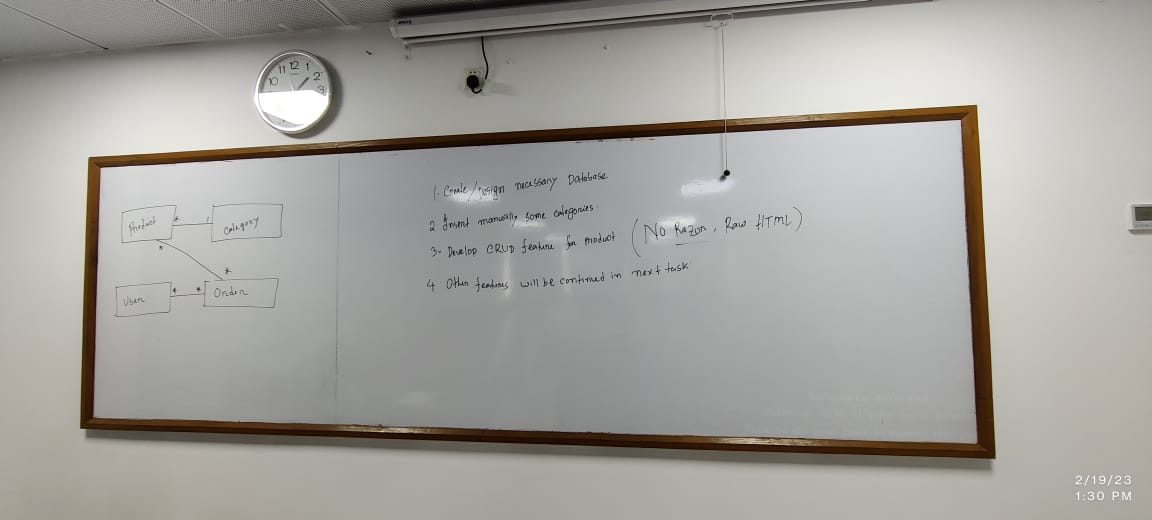 11 12 1
10 2
3
Product * 1 Category
* *
User * * Order
1. Create/Design necessary Database
2 Insert manually some categories.
3. Develop CRUD feature for product (No Razor, Raw HTML)
4 Other features will be continued in next task
2/19/23
1:30 PM